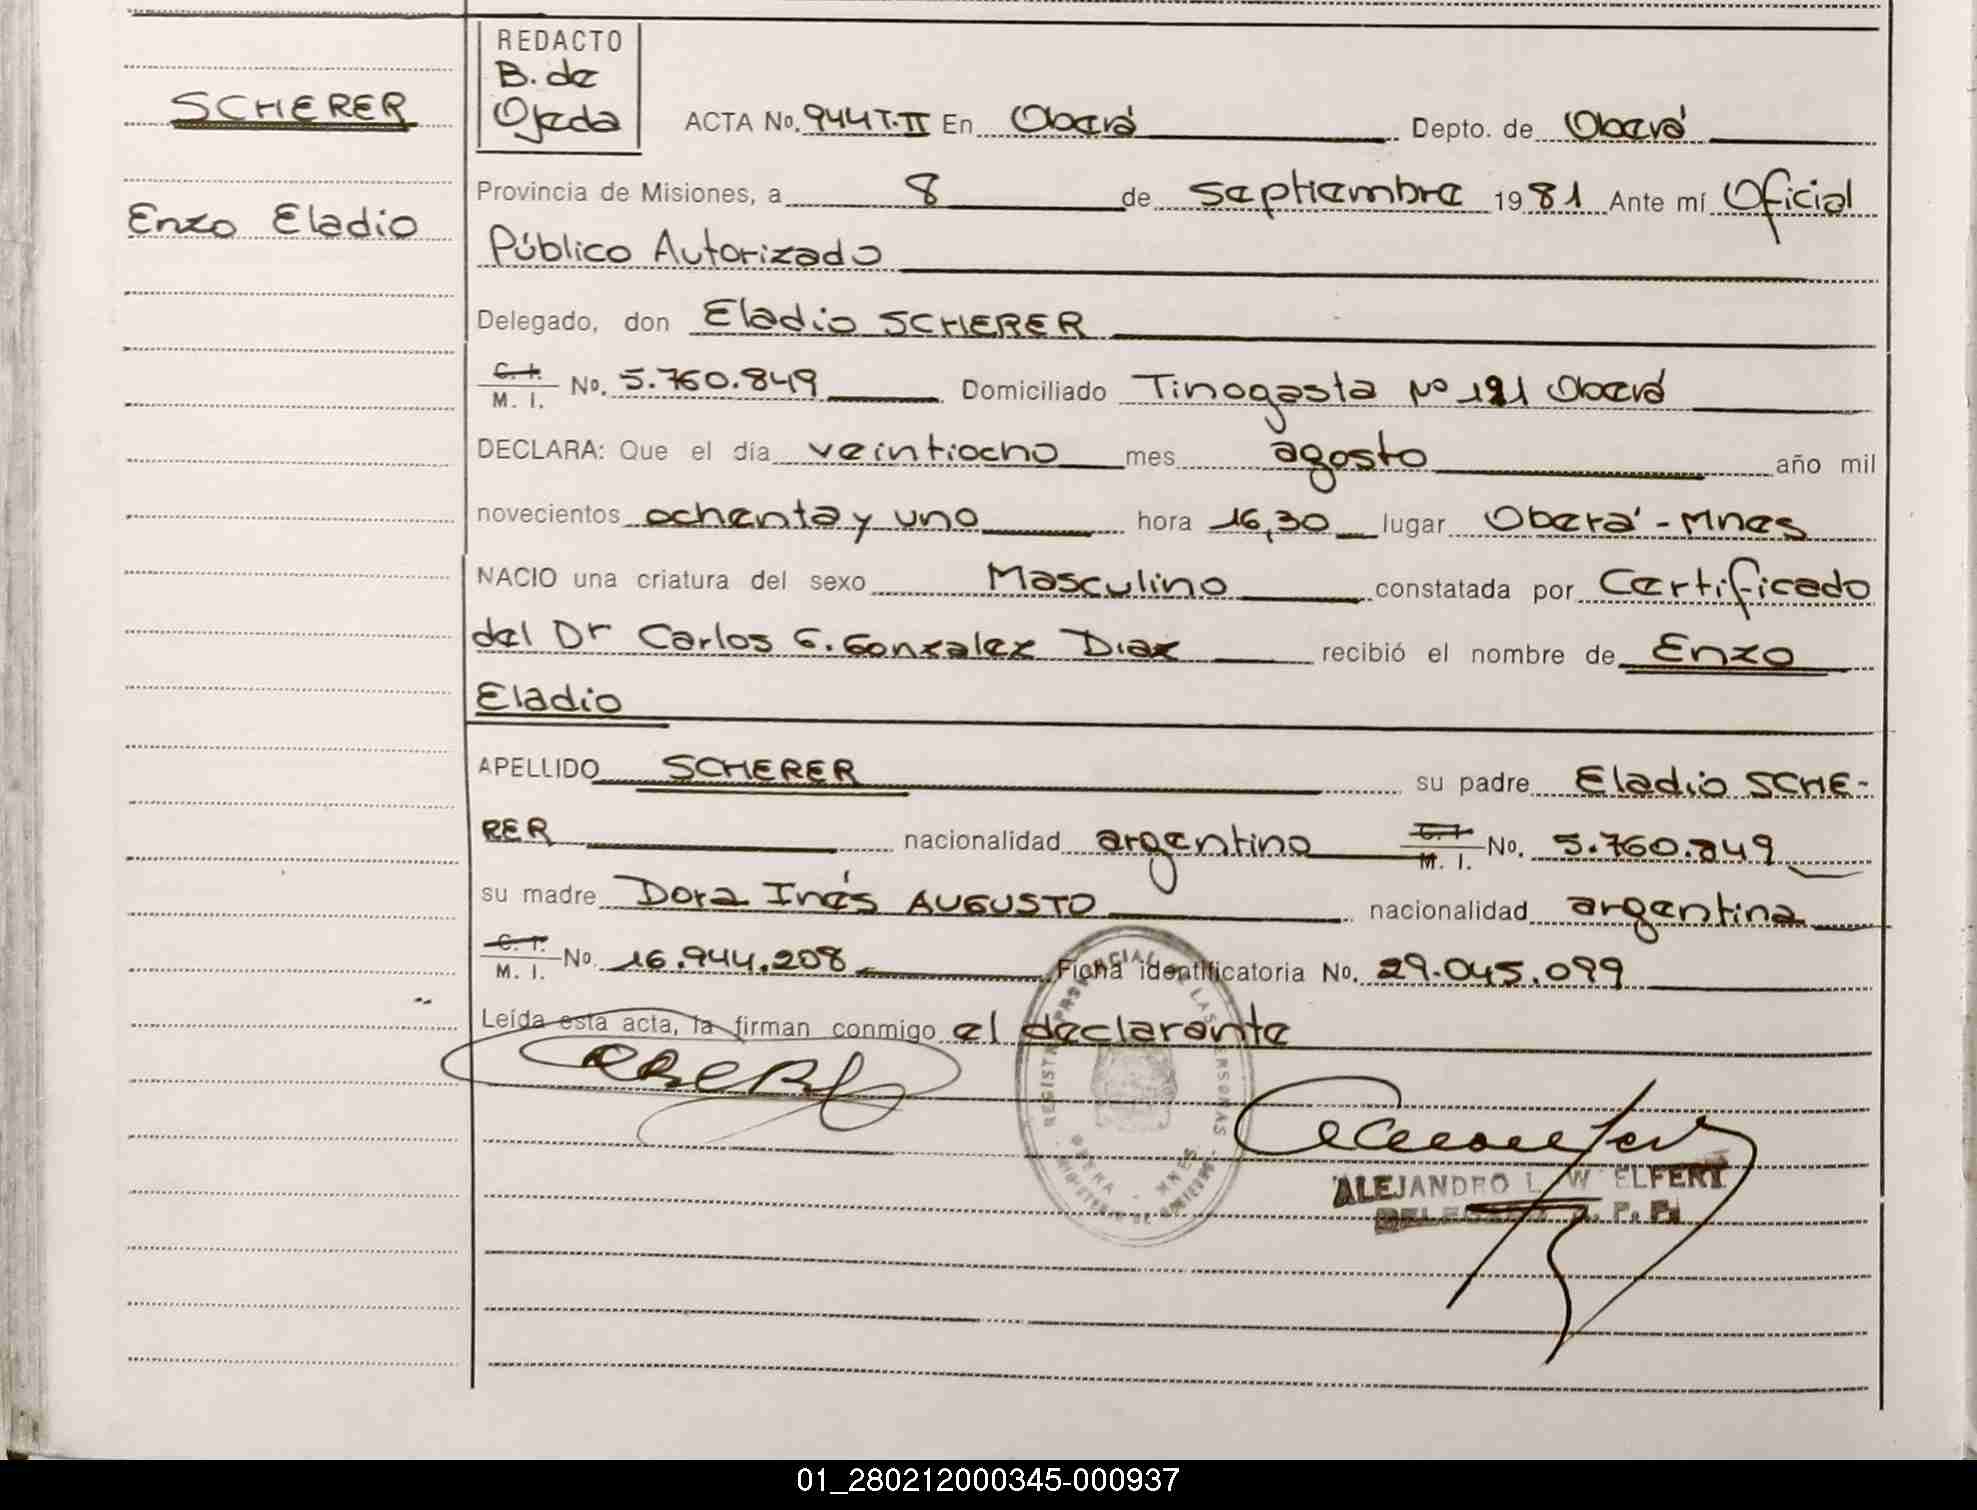 SCHERER
Enzo Eladio
REDACTO
B. de
Ojeda
ACTA No. 944 T. II En Oberá Depto. de Oberá
Provincia de Misiones, a 8 de septiembre 1981 Ante mí Oficial
Público Autorizado
Delegado, don Eladio SCHERER
C. I. M. I. No. 5.760.849 Domiciliado Tinogasta No 191 Oberá
DECLARA: Que el día veintiocho mes agosto año mil
novecientos ochenta y uno hora 16,30 lugar Oberá - Mnes
NACIO una criatura del sexo Masculino constatada por Certificado
del Dr Carlos G. Gonzalez Diaz recibió el nombre de Enzo
Eladio
APELLIDO SCHERER su padre Eladio SCHE-
RER nacionalidad argentino C. I. M. I. No. 5.760.849
su madre Dora Inés AUGUSTO nacionalidad argentina
C. I. M. I. No. 16.944.208 Ficha identificatoria No. 29.045.099
Leída esta acta, la firman conmigo el declarante
REGISTRO PROVINCIAL DE LAS PERSONAS
OBERA - MNES.
MINISTERIO DE GOBIERNO
ALEJANDRO L. W ELFERT
DELEGADO R. P. P.
01_280212000345-000937